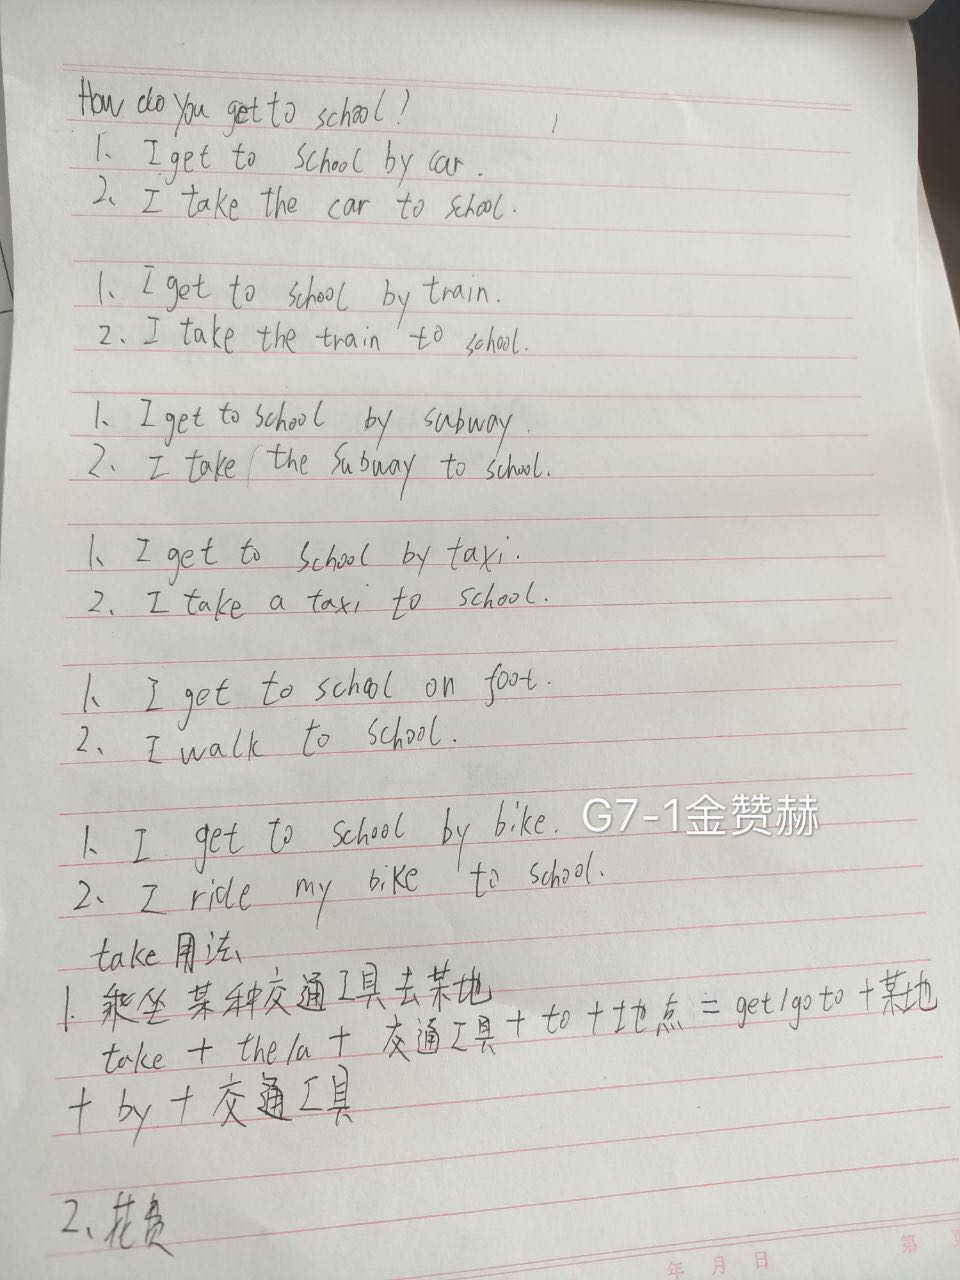 How do you get to school?
1、I get to school by car.
2、I take the car to school.
1、I get to school by train.
2、I take the train to school.
1、I get to school by subway.
2、I take the subway to school.
1、I get to school by taxi.
2、I take a taxi to school.
1、I get to school on foot.
2、I walk to school.
1、I get to school by bike.
G7-1金赞赫
2、I ride my bike to school.
take 用法
1、乘坐某种交通工具去某地
take + the/a + 交通工具 + to + 地点 = get/go to + 某地
+ by + 交通工具
2、花费
年 月 日
第